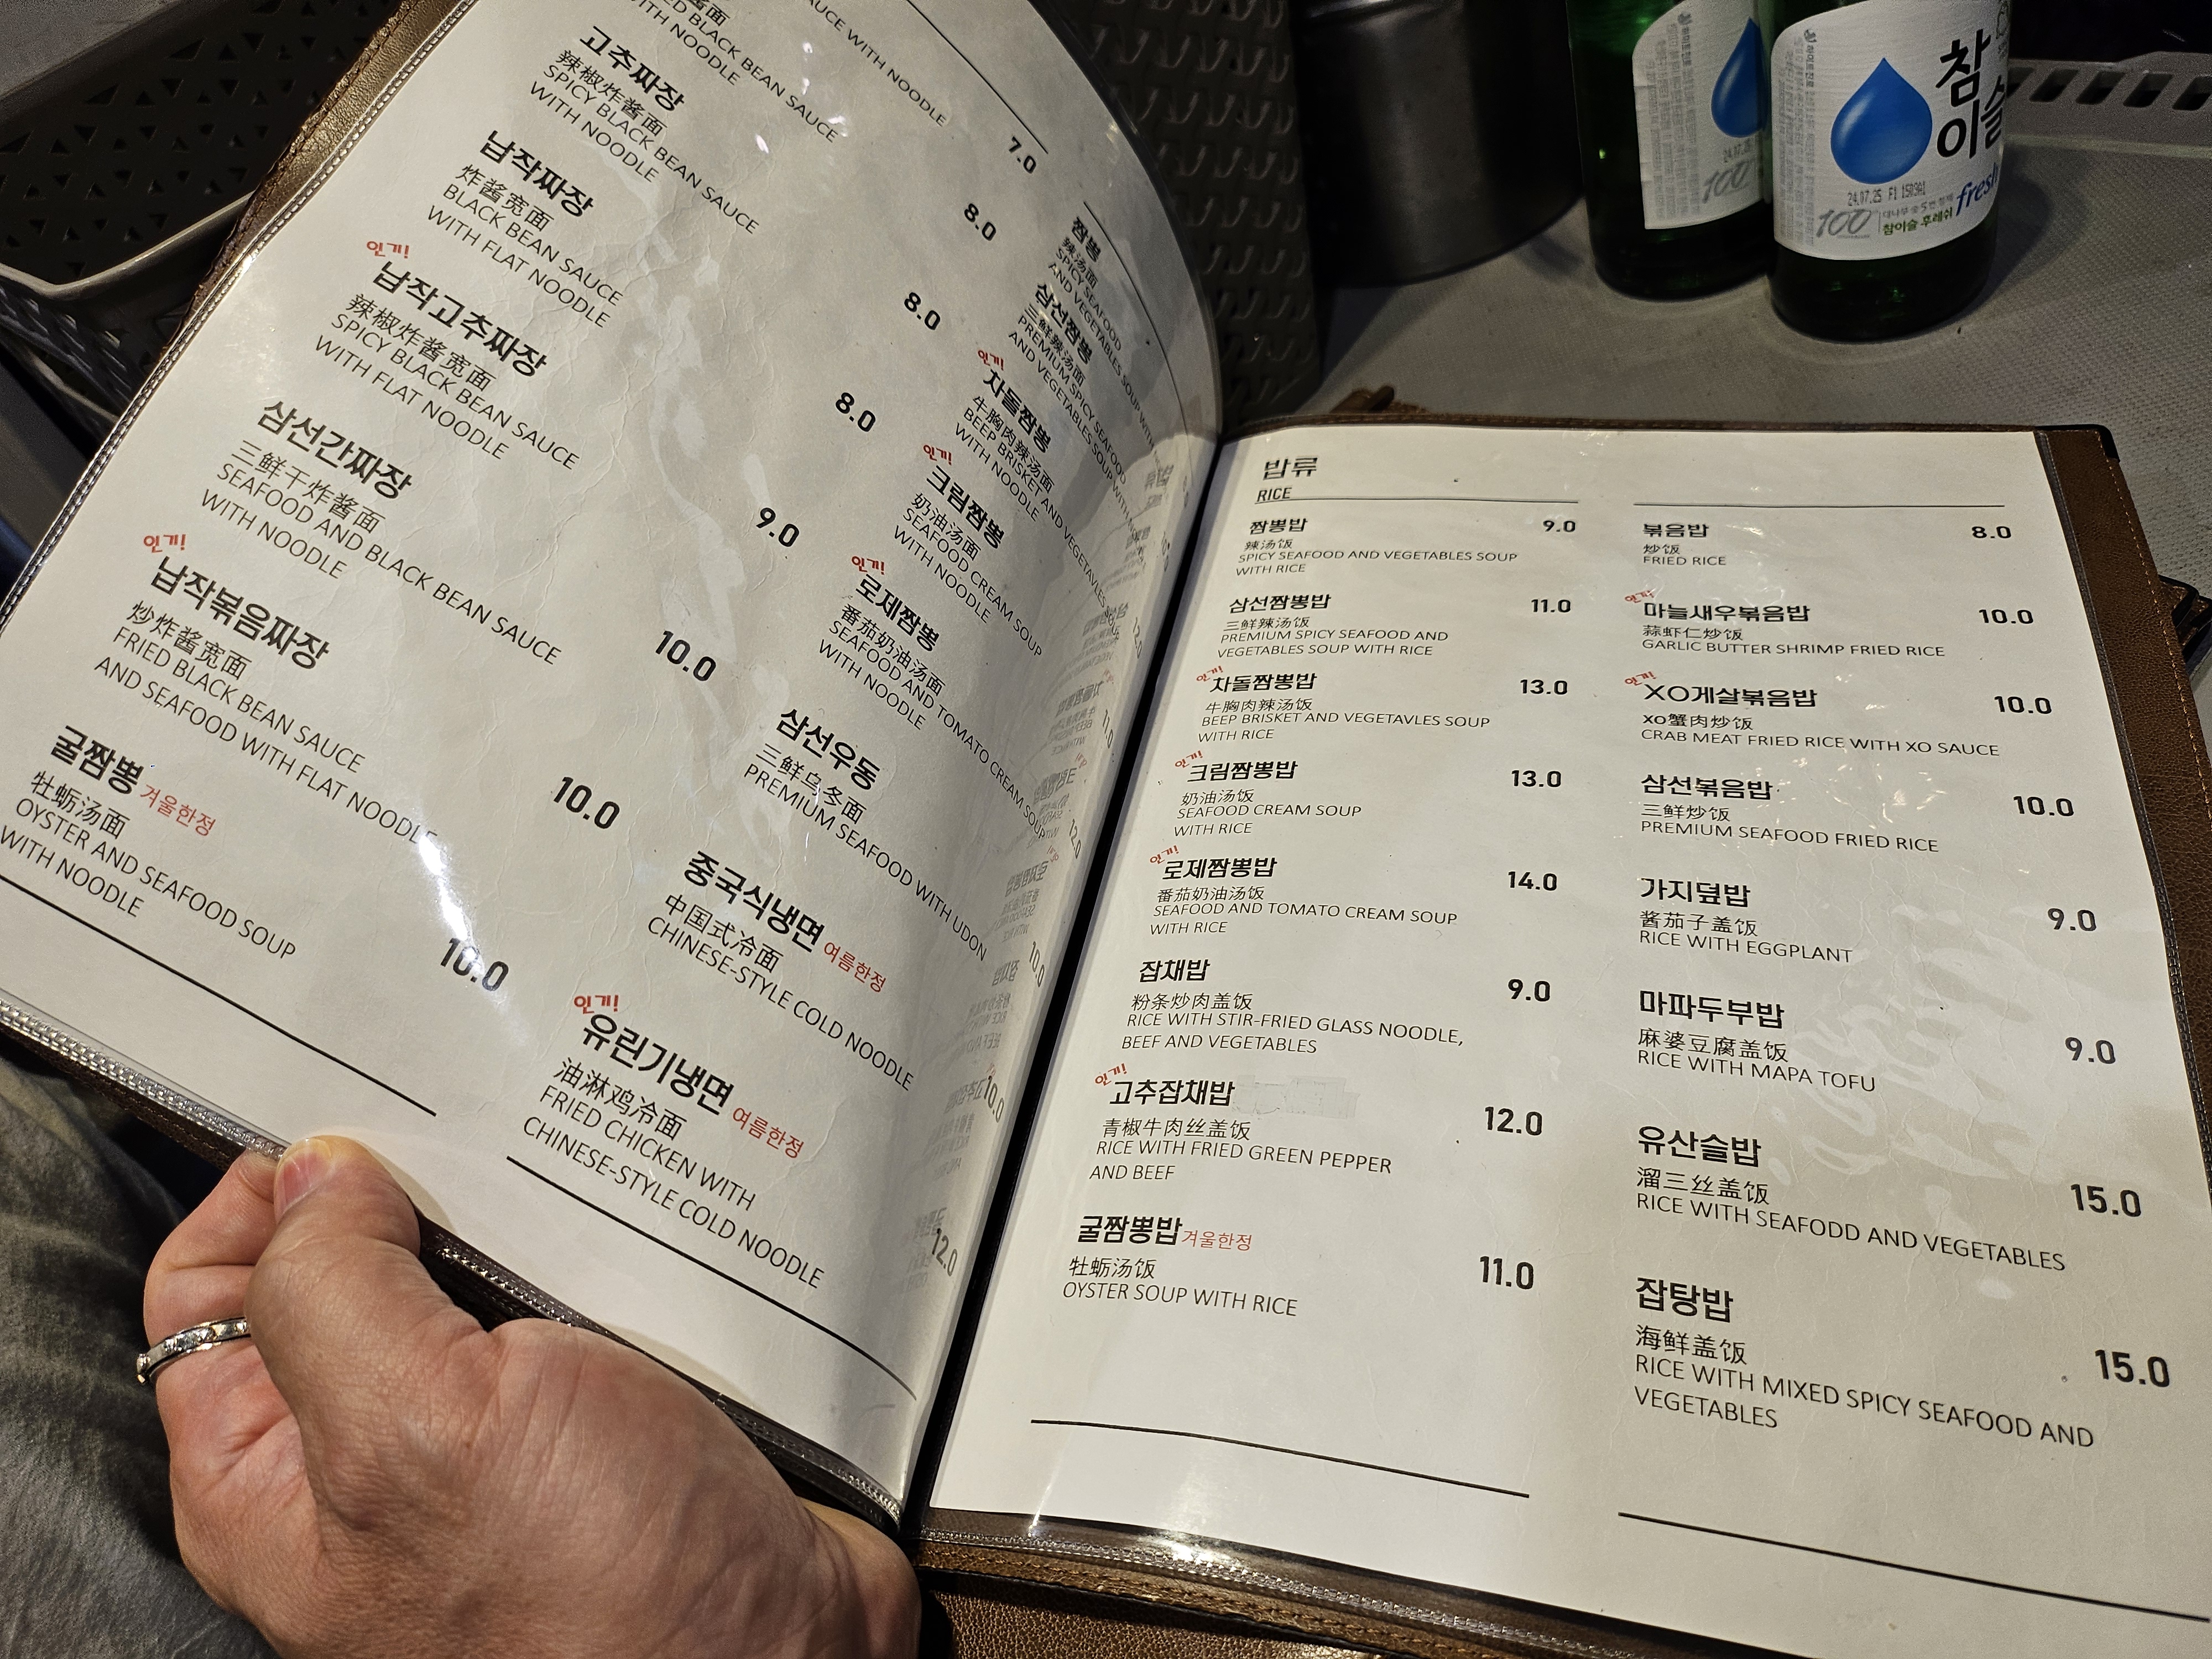 SAUCE WITH NOODLE
FRIED BLACK BEAN SAUCE
WITH NOODLE
7.0
고추짜장
辣椒炸酱面
SPICY BLACK BEAN SAUCE
WITH NOODLE
8.0
납작짜장
炸酱宽面
BLACK BEAN SAUCE
WITH FLAT NOODLE
8.0
인기!
납작고추짜장
辣椒炸酱宽面
SPICY BLACK BEAN SAUCE
WITH FLAT NOODLE
8.0
삼선간짜장
三鲜干炸酱面
SEAFOOD AND BLACK BEAN SAUCE
WITH NOODLE
9.0
인기!
납작볶음짜장
炒炸酱宽面
FRIED BLACK BEAN SAUCE
AND SEAFOOD WITH FLAT NOODLE
10.0
굴짬뽕 겨울한정
牡蛎汤面
OYSTER AND SEAFOOD SOUP
WITH NOODLE
10.0
10.0
짬뽕
辣汤面
SPICY SEAFOOD
AND VEGETABLES SOUP WITH
삼선짬뽕
三鲜辣汤面
PREMIUM SPICY SEAFOOD
AND VEGETABLES SOUP WITH
인기!
차돌짬뽕
牛胸肉辣汤面
BEEP BRISKET AND VEGETAVLES
WITH NOODLE
12.0
인기!
크림짬뽕
奶油汤面
SEAFOOD CREAM SOUP
WITH NOODLE
11.0
인기!
로제짬뽕
番茄奶油汤面
SEAFOOD AND TOMATO CREAM SOUP
WITH NOODLE
12.0
삼선우동
三鲜乌冬面
PREMIUM SEAFOOD WITH UDON
10.0
중국식냉면 여름한정
中国式冷面
CHINESE-STYLE COLD NOODLE
10.0
인기!
유린기냉면 여름한정
油淋鸡冷面
FRIED CHICKEN WITH
CHINESE-STYLE COLD NOODLE
12.0
밥류
RICE
짬뽕밥 9.0
辣汤饭
SPICY SEAFOOD AND VEGETABLES SOUP
WITH RICE
삼선짬뽕밥 11.0
三鲜辣汤饭
PREMIUM SPICY SEAFOOD AND
VEGETABLES SOUP WITH RICE
인기!
차돌짬뽕밥 13.0
牛胸肉辣汤饭
BEEP BRISKET AND VEGETAVLES SOUP
WITH RICE
인기!
크림짬뽕밥 13.0
奶油汤饭
SEAFOOD CREAM SOUP
WITH RICE
인기!
로제짬뽕밥 14.0
番茄奶油汤饭
SEAFOOD AND TOMATO CREAM SOUP
WITH RICE
잡채밥 9.0
粉条炒肉盖饭
RICE WITH STIR-FRIED GLASS NOODLE,
BEEF AND VEGETABLES
인기!
고추잡채밥 12.0
青椒牛肉丝盖饭
RICE WITH FRIED GREEN PEPPER
AND BEEF
굴짬뽕밥 겨울한정 11.0
牡蛎汤饭
OYSTER SOUP WITH RICE
볶음밥 8.0
炒饭
FRIED RICE
인기!
마늘새우볶음밥 10.0
蒜虾仁炒饭
GARLIC BUTTER SHRIMP FRIED RICE
인기!
XO게살볶음밥 10.0
xo蟹肉炒饭
CRAB MEAT FRIED RICE WITH XO SAUCE
삼선볶음밥 10.0
三鲜炒饭
PREMIUM SEAFOOD FRIED RICE
가지덮밥 9.0
酱茄子盖饭
RICE WITH EGGPLANT
마파두부밥 9.0
麻婆豆腐盖饭
RICE WITH MAPA TOFU
유산슬밥 15.0
溜三丝盖饭
RICE WITH SEAFODD AND VEGETABLES
잡탕밥 15.0
海鲜盖饭
RICE WITH MIXED SPICY SEAFOOD AND
VEGETABLES
참이슬
fresh
24.07.25 F1
100
참이슬 후레쉬
24.07.25
100